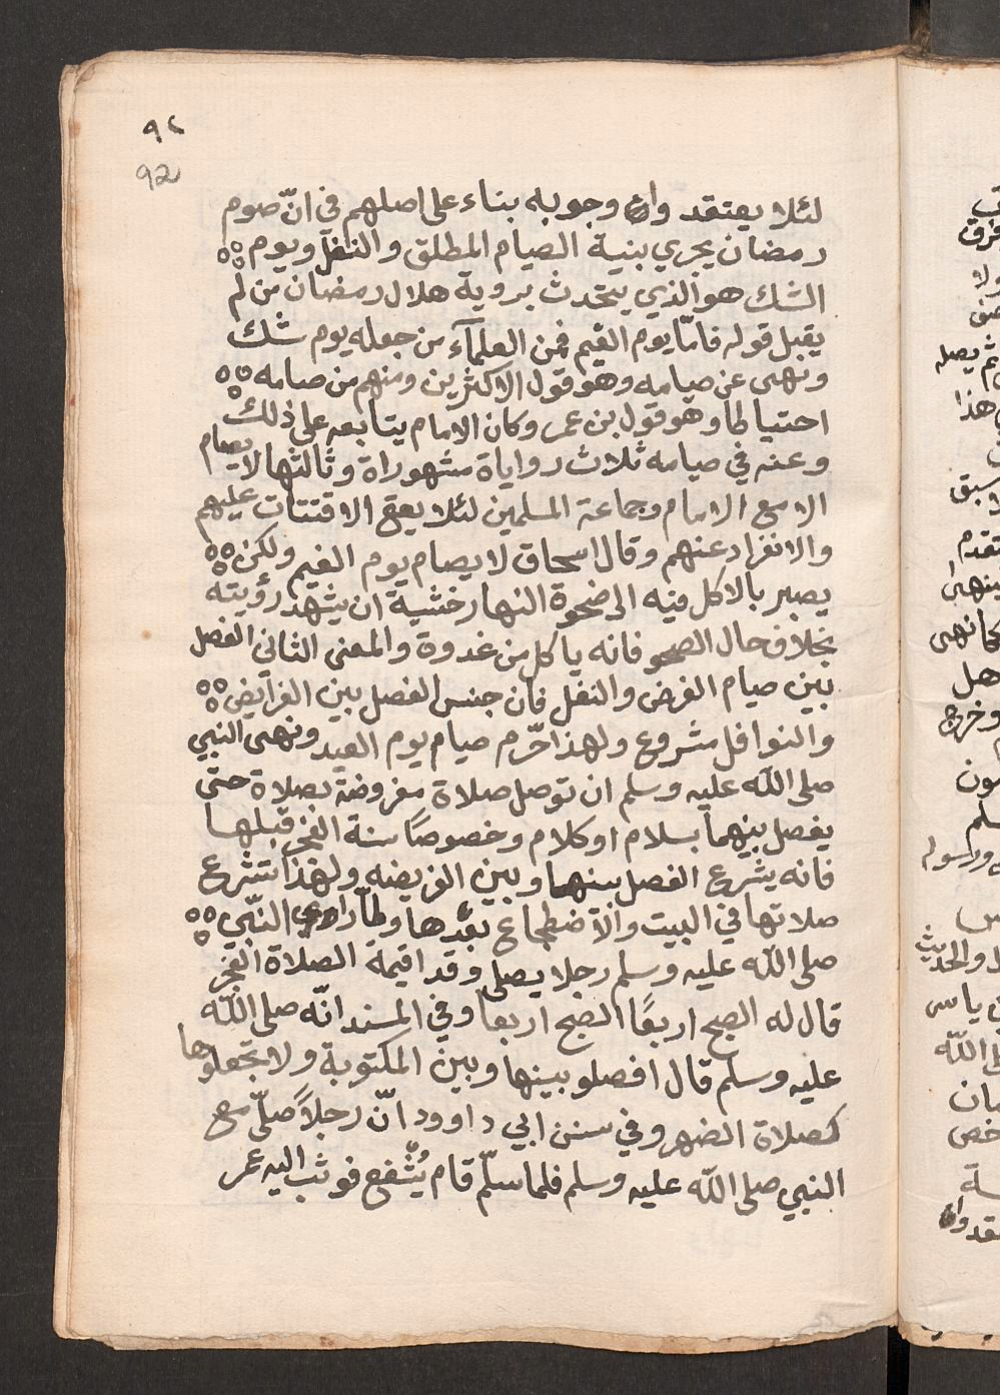 ٩٢
92
لئلا يعتقد وجوبه بناء على اصلهم في انّ صوم
رمضان يجري بنية الصيام المطلق والنفل ويوم
الشك هو الذي يتحدث بروية هلال رمضان من لم
يقبل قوله فامّا يوم الغيم فمن العلمآء من جعله يوم شك
ونهى عن صيامه وهو قول الاكثرين ومنهم من صيامه
احتياطا وهو قول بن عمر وكان الامام يتابعه على ذلك
وعنه في صيامه ثلاث رواياة مشهوراة وثالثها لا يصام
الا مع الامام وجماعة المسلمين لئلا يقع الافتتات عليهم
والانفراد عنهم وقال اسحاق لا يصام يوم الغيم ولكن
يصبر بالاكل فيه الى ضحوة النهار خشية ان يشهد رؤيته
بخلاف حال الصحو فانه ياكل من غدوة والمعنى الثاني الفصل
بين صيام الفرض والنفل فان جنس الفصل بين الفرايض
والنوافل مشروع ولهذا حّرم صيام يوم العيد ونهى النبي
صلى اللّه عليه وسلم ان توصل صلاة مفروضة بصلاة حتى
يفصل بينهما بسلام او كلام وخصوصًا سنة الفجر قبلها
فانه يشرع الفصل بينهما وبين الفريضه ولهذا تشرع
صلاتها في البيت والاضطجاع بعدها ولمّا راى النّبي
صلى اللّه عليه وسلم رجلا يصلى وقد اقيمة الصلاة الفجر
قال له الصبح اربعًا الصبح اربعا وفي المسند انّه صلى اللّه
عليه وسلم قال افصلو بينها وبين المكتوبة ولا تجعلوها
كصلاة الضهر وفي سنن ابي داوود انّ رجلاً صلّى مع
النبي صلى اللّه عليه وسلم فلما سلّم قام يُشفع فوثب اليه عمر